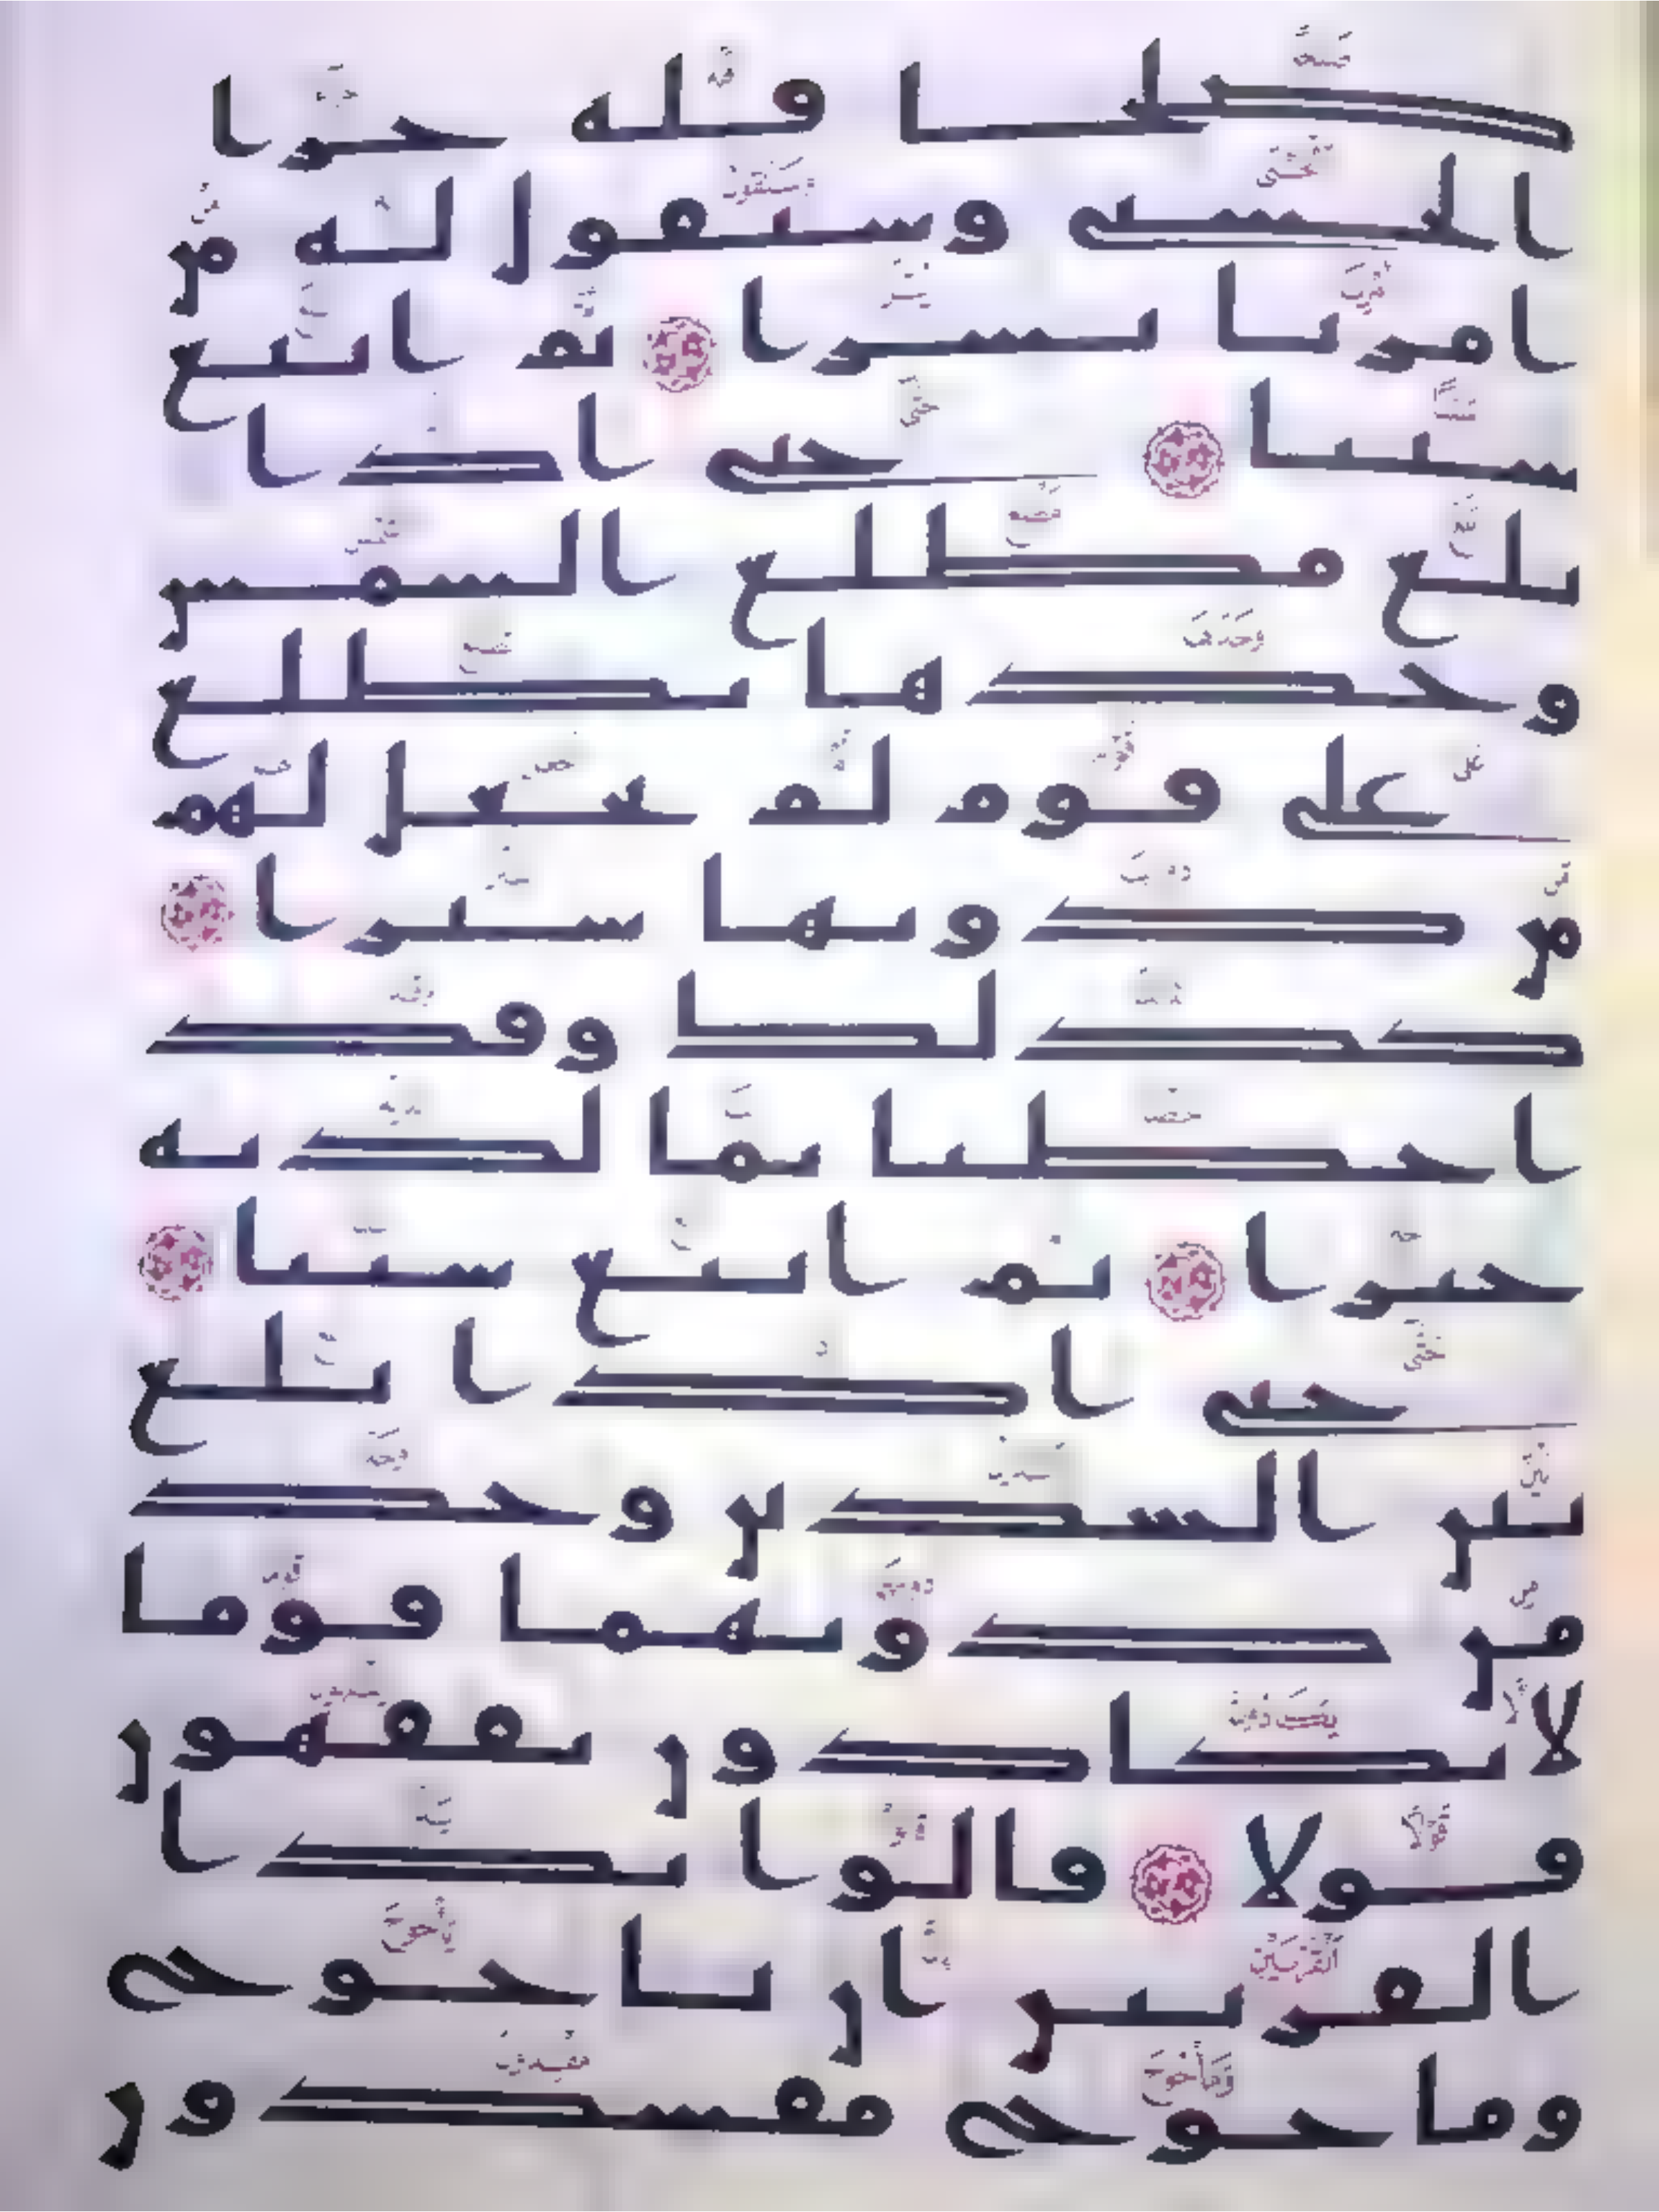 صلحا فله جزا
الحسنى وسنقول له من
امرنا يسرا ثم اتبع
سببا حتى اذا
بلغ مطلع الشمس
وجدها تطلع
على قوم لم نجعل لهم
من دونها سترا
كذلك وقد
احطنا بما لديه
خبرا ثم اتبع سببا
حتى اذا بلغ
بين السدين وجد
من دونهما قوما
لا يكادون يفقهون
قولا قالوا يذا
القرنين ان ياجوج
وماجوج مفسدون